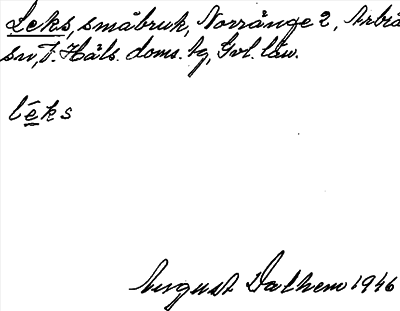 Leks, småbruk, Norränge 2, Arbrå
sn, F. Häls. doms. hg, Gvl. län.
lēks
August Dalhem 1946